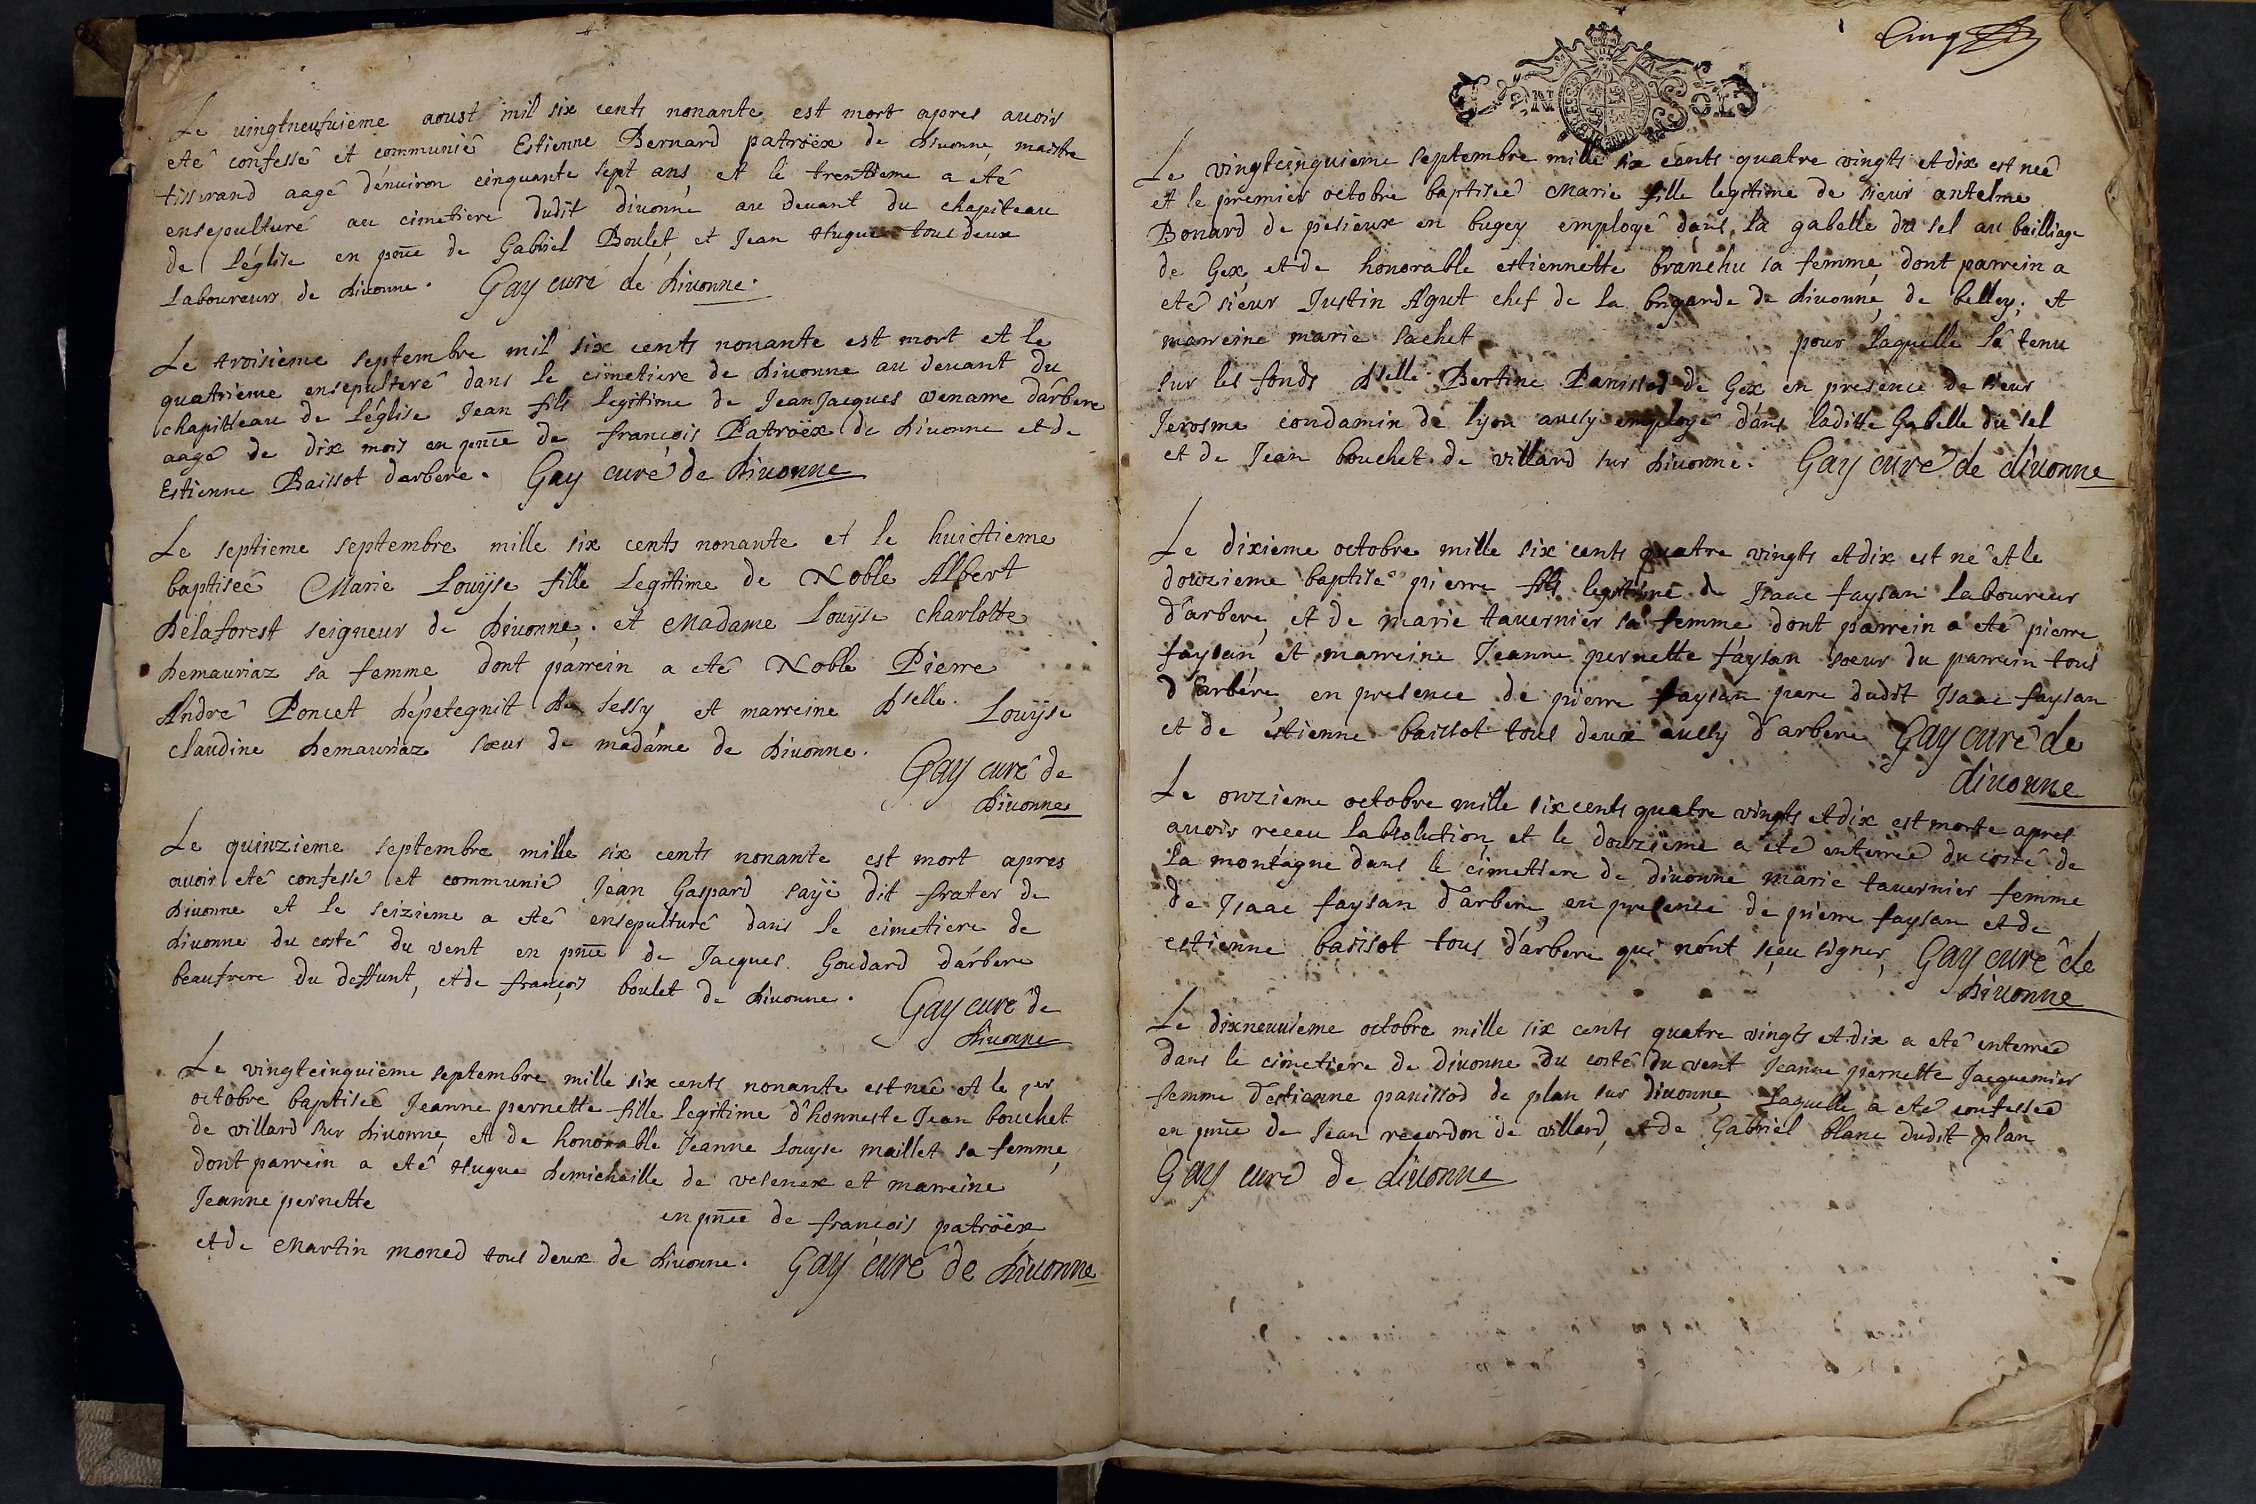 Le vingtneufuieme aoust mil six cents nonante est mort apres auoir
eté confessé et communié Estienne Bernard patroëx de diuonne, maistre
tisserand aagé d'enuiron cinquante sept ans, et le trentieme a eté
ensepulturé au cimetiere dudit diuonne au deuant du chapiteau
de l'église en pnce de Gabriel Boulet, et Jean Hugue tous deux
laboureurs de diuonne. Gay curé de diuonne.
Le troisieme septembre mil six cents nonante est mort et le
quatrieme ensepulteré dans le cimetiere de diuonne au deuant du
chapitteau de l'église Jean fils legitime de JeanJacques venarre d'arbere
aagé de dix mois en pnce de francois Patroëx de diuonne et de
Estienne Baissot darbere. Gay curé de diuonne
Le septieme septembre mille six cents nonante et le huictieme
baptiseé Marie Louÿse fille legitime de Noble Albert
delaforest seigneur de diuonne, et Madame Louÿse charlotte
demauriaz sa femme dont parrein a eté Noble Pierre
André Poncet depetegnit de Sessy et marreine dselle. Louÿse
claudine demauriaz sœur de madame de diuonne.
Gay curé de
diuonne
Le quinzieme septembre mille six cents nonante est mort apres
auoir eté confessé et communié Jean Gaspard sayë dit frater de
diuonne et le seizieme a eté ensepulturé dans le cimetiere de
diuonne du costé du vent en pnce de Jacques Goudard d'arbere
beaufrere du deffunt, et de françois boulet de diuonne.
Gay curé de
diuonne
Le vingtcinquieme septembre mille six cents nonante est neé et le per
octobre baptiseé Jeanne pernette fille legitime d'honneste Jean bouchet
de villard sur diuonne, et de honorable Jeanne Louyse maillet sa femme,
dont parrein a eté Hugue demichaille de vesenex et marreine
Jeanne pernette en pnce de françois patroëx
et de Martin moned tous deux de diuonne. Gay curé de diuonne
Cinq
Le vingtcinquieme septembre mille six cents quatre vingts et dix est neé
et le premier octobre baptiseé Marie fille legitime de sieur antelme
Bonard de pesieux en bugey employé dans la gabelle du sel au bailliage
de Gex, et de honorable estiennette branchu sa femme, dont parrein a
eté sieur Justin Agut chef de la brigande de diuonne, de belley, et
marreine marie sachet pour laquelle l'a tenu
sur les fonds dselle Bertine Panissod de Gex en presence de sieur
Jerosme condamin de lyon aussy employé dans laditte Gabelle du sel
et de Jean bouchet de villard sur diuonne. Gay curé de diuonne
Le dixieme octobre mille six cents quatre vingts et dix est né et le
douzieme baptisé pierre fils legitime de Isaac faysan laboureur
d'arbere, et de marie tauernier sa femme dont parrein a eté pierre
faysan et marreine Jeanne pernette faysan sœur du parrein tous
d'arbere, en presence de pierre faysan pere dudit Isaac faysan
et de estienne baissot tous deux aussy d'arbere Gay curé de
diuonne
Le onzieme octobre mille six cents quatre vingts et dix est morte apres
auoir receu labsolution, et le douzieme a eté enterreé du costé de
la montagne dans le cimetiere de diuonne marie tauernier femme
de Isaac faysan d'arbere, en presence de pierre faysan et de
estienne baissot tous d'arbere qui n'ont sçeu signer, Gay curé de
diuonne
Le dixneuuieme octobre mille six cents quatre vingts et dix a eté enterreé
dans le cimetiere de diuonne du costé du vent Jeanne pernette Jacquemier
femme d'estienne panissod de plan sur diuonne laquelle a eté confesseé
en pnce de Jean recordon de villard, et de Gabriel blanc dudit plan
Gay curé de diuonne